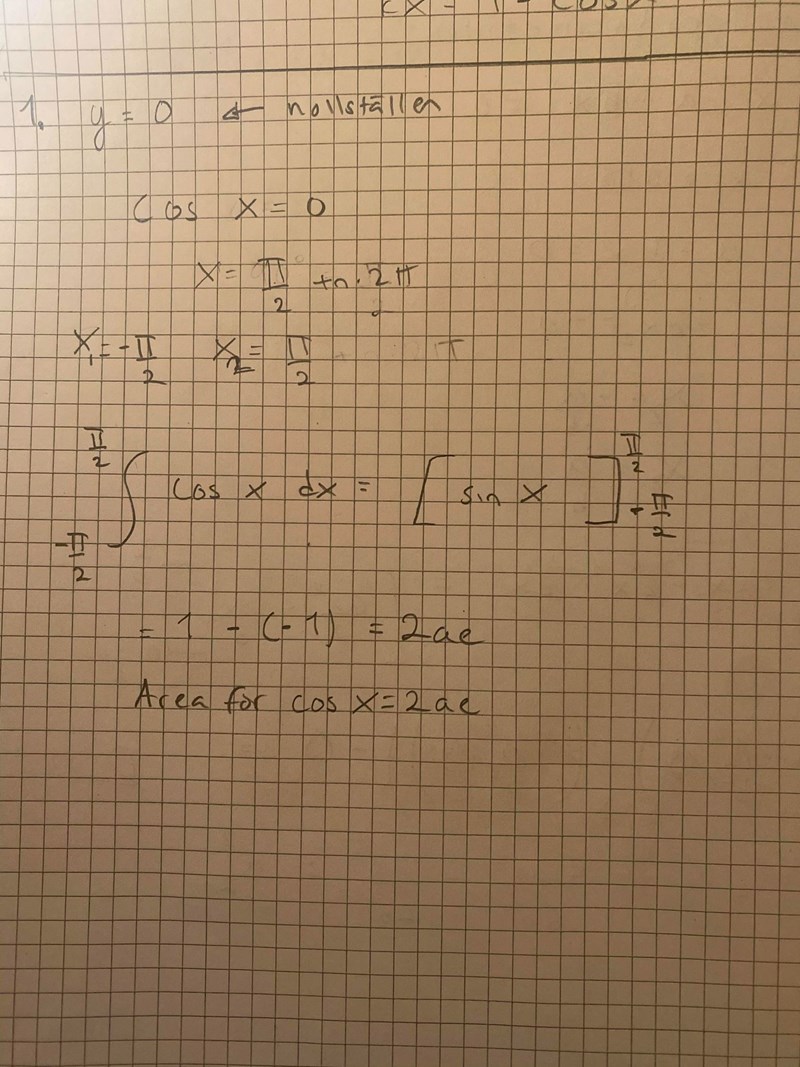 1. y = 0 ← nollställen
Cos x = 0
x = π/2 +n·2π
x₁ = -π/2 x₂ = π/2
∫_{-π/2}^{π/2} cos x dx = [sin x]_{-π/2}^{π/2}
= 1 - (-1) = 2ae
Area for cos x = 2ae